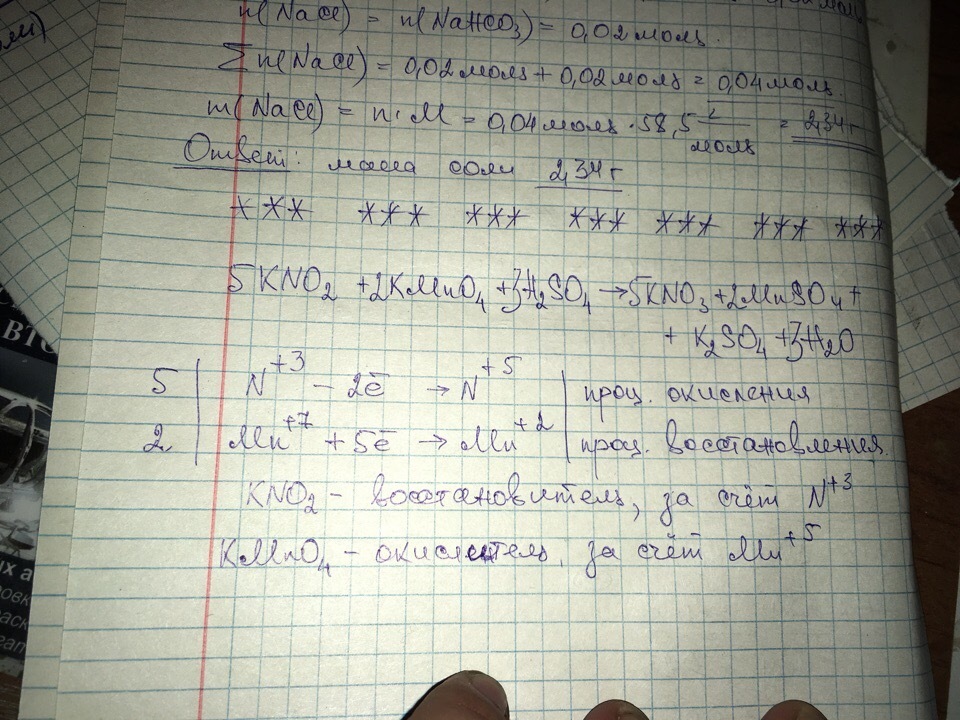 n(NaCl) = n(NaHCO₃) = 0,02 моль.
∑n(NaCl) = 0,02 моль + 0,02 моль = 0,04 моль.
m(NaCl) = n·M = 0,04 моль · 58,5 г/моль = 2,34 г
Ответ: масса соли 2,34 г
*** *** *** *** *** *** ***
5KNO₂ + 2KMnO₄ + 3H₂SO₄ → 5KNO₃ + 2MnSO₄ +
+ K₂SO₄ + 3H₂O
5 | N⁺³ – 2ē → N⁺⁵ | проц. окисления
2 | Mn⁺⁷ + 5ē → Mn⁺² | проц. восстановления
KNO₂ – восстановитель, за счёт N⁺³
KMnO₄ – окислитель, за счёт Mn⁺⁵
ВТО